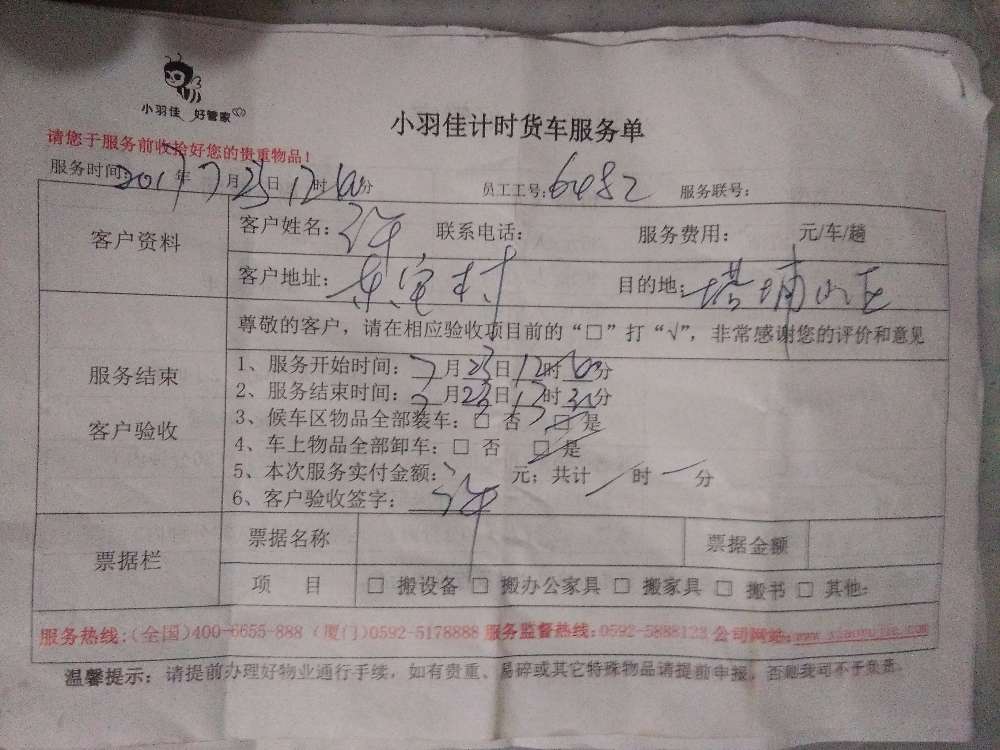 小羽佳 好管家
小羽佳计时货车服务单
请您于服务前收拾好您的贵重物品！
服务时间：2017年7月23日12时00分 员工工号：6482 服务联号：
客户资料
客户姓名： 联系电话： 服务费用： 元/车/趟
客户地址：东宅村 目的地：塔埔
尊敬的客户，请在相应验收项目前的“□”打“√”，非常感谢您的评价和意见
服务结束
客户验收
1、服务开始时间：7月23日12时00分
2、服务结束时间：7月23日13时30分
3、候车区物品全部装车：□ 否 □ 是
4、车上物品全部卸车：□ 否 □ 是
5、本次服务实付金额： 元；共计 时 分
6、客户验收签字：
票据栏
票据名称 票据金额
项 目 □ 搬设备 □ 搬办公家具 □ 搬家具 □ 搬书 □ 其他：
服务热线：（全国）400-6655-888（厦门）0592-5178888 服务监督热线：0592-5888123 公司网站：www.xiaoyujia.com
温馨提示：请提前办理好物业通行手续，如有贵重、易碎或其它特殊物品请提前申报，否则我司不予负责。